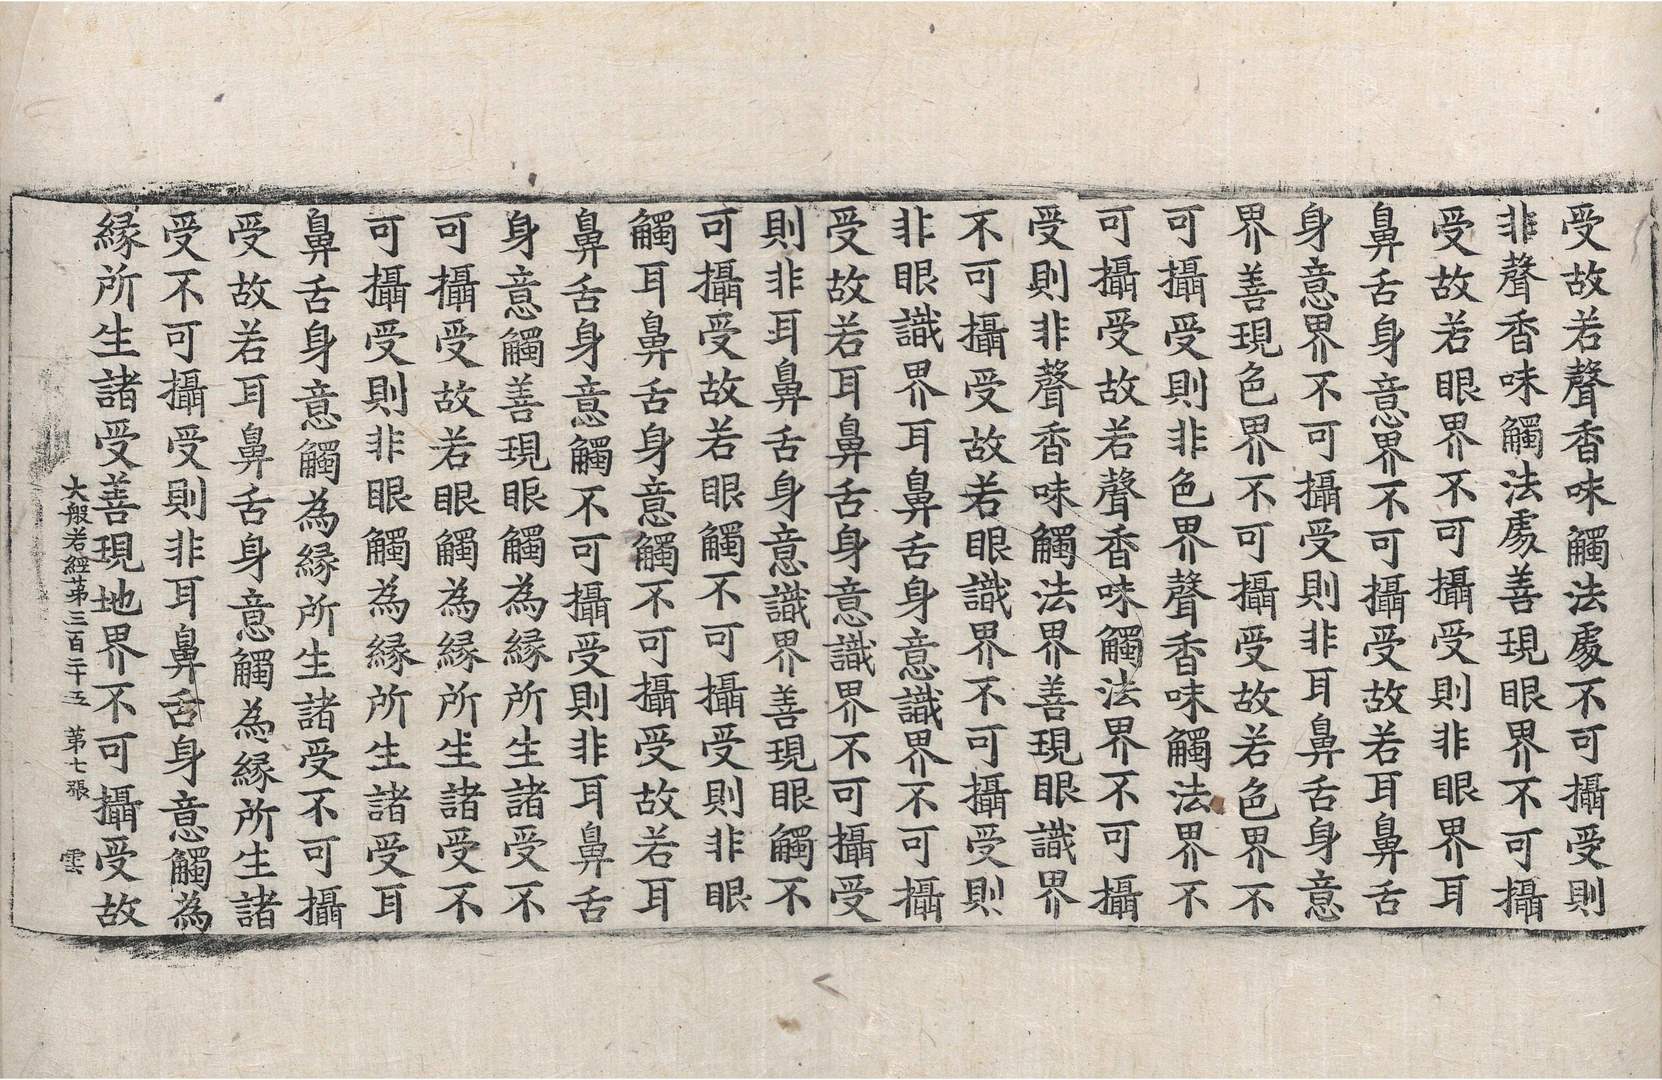 受故若聲香味觸法處不可攝受則
非聲香味觸法處善現眼界不可攝
受故若眼界不可攝受則非眼界耳
鼻舌身意界不可攝受故若耳鼻舌
身意界不可攝受則非耳鼻舌身意
界善現色界不可攝受故若色界不
可攝受則非色界聲香味觸法界不
可攝受故若聲香味觸法界不可攝
受則非聲香味觸法界善現眼識界
不可攝受故若眼識界不可攝受則
非眼識界耳鼻舌身意識界不可攝
受故若耳鼻舌身意識界不可攝受
則非耳鼻舌身意識界善現眼觸不
可攝受故若眼觸不可攝受則非眼
觸耳鼻舌身意觸不可攝受故若耳
鼻舌身意觸不可攝受則非耳鼻舌
身意觸善現眼觸為緣所生諸受不
可攝受故若眼觸為緣所生諸受不
可攝受則非眼觸為緣所生諸受耳
鼻舌身意觸為緣所生諸受不可攝
受故若耳鼻舌身意觸為緣所生諸
受不可攝受則非耳鼻舌身意觸為
緣所生諸受善現地界不可攝受故
大般若經苐三百二十五 苐七張 雲